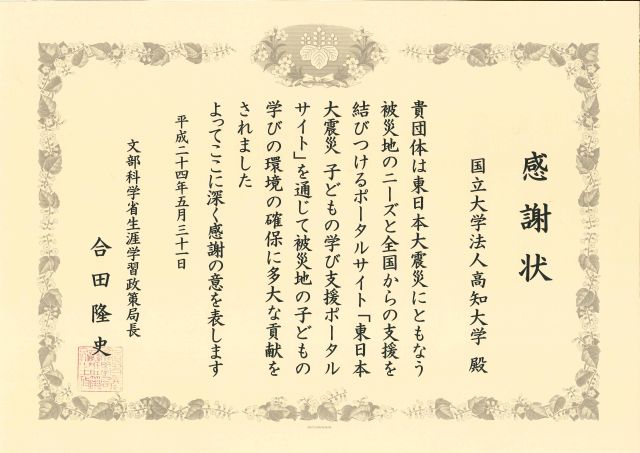 感謝状
国立大学法人高知大学 殿
貴団体は東日本大震災にともなう
被災地のニーズと全国からの支援を
結びつけるポータルサイト「東日本
大震災 子どもの学び支援ポータル
サイト」を通じて被災地の子どもの
学びの環境の確保に多大な貢献を
されました
よってここに深く感謝の意を表します
平成二十四年五月三十一日
文部科学省生涯学習政策局長
合田隆史